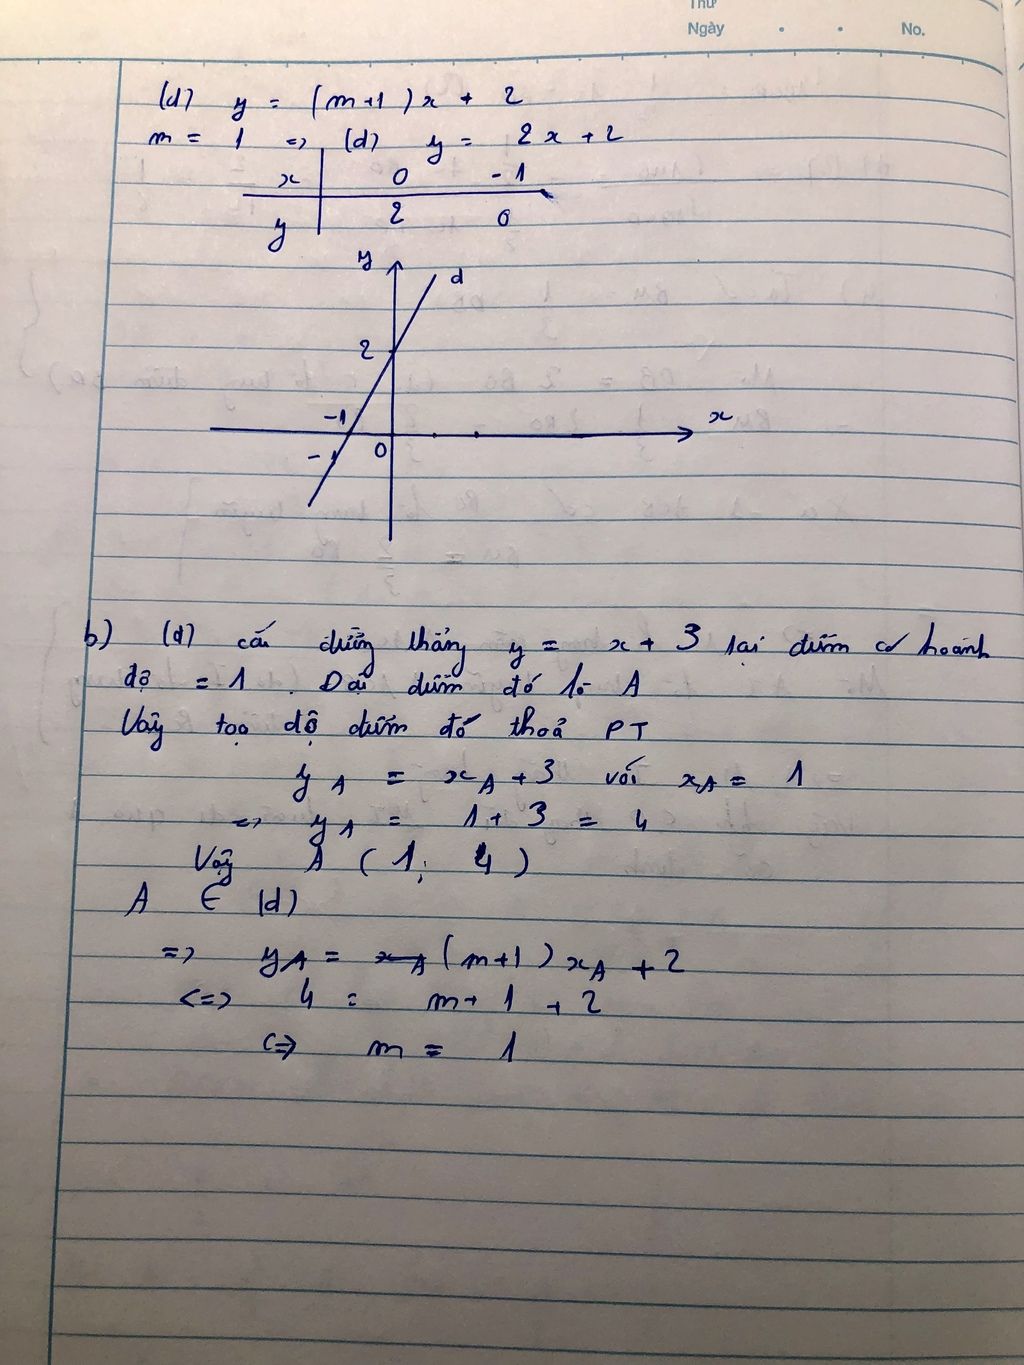 Thứ
Ngày . . No.
(d) y = (m+1)x + 2
m = 1 => (d) y = 2x + 2
x 0 -1
y 2 0
y d
2
-1 x
-1 0
b) (d) cắt đường thẳng y = x + 3 tại điểm có hoành
độ = 1. Gọi điểm đó là A
Vậy toạ độ điểm đó thoả PT
y_A = x_A + 3 với x_A = 1
=> y_A = 1 + 3 = 4
Vậy A (1; 4)
A ∈ (d)
=> y_A = (m+1)x_A + 2
<=> 4 = m + 1 + 2
<=> m = 1